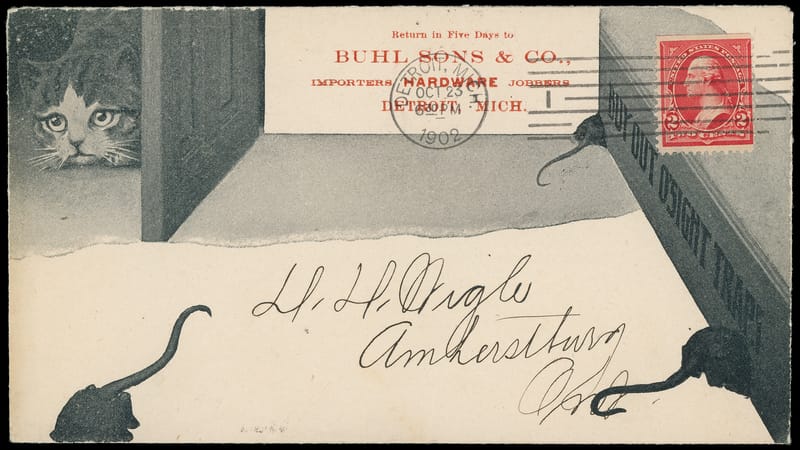 Return in Five Days to
BUHL SONS & CO.,
IMPORTERS HARDWARE JOBBERS
DETROIT, MICH.
DETROIT, MICH.
OCT 23
PM
1902
1
UNITED STATES POSTAGE
2 2
BUY OUT O'SIGHT TRAPS
H. H. Wigle
Amherstburg
Ont